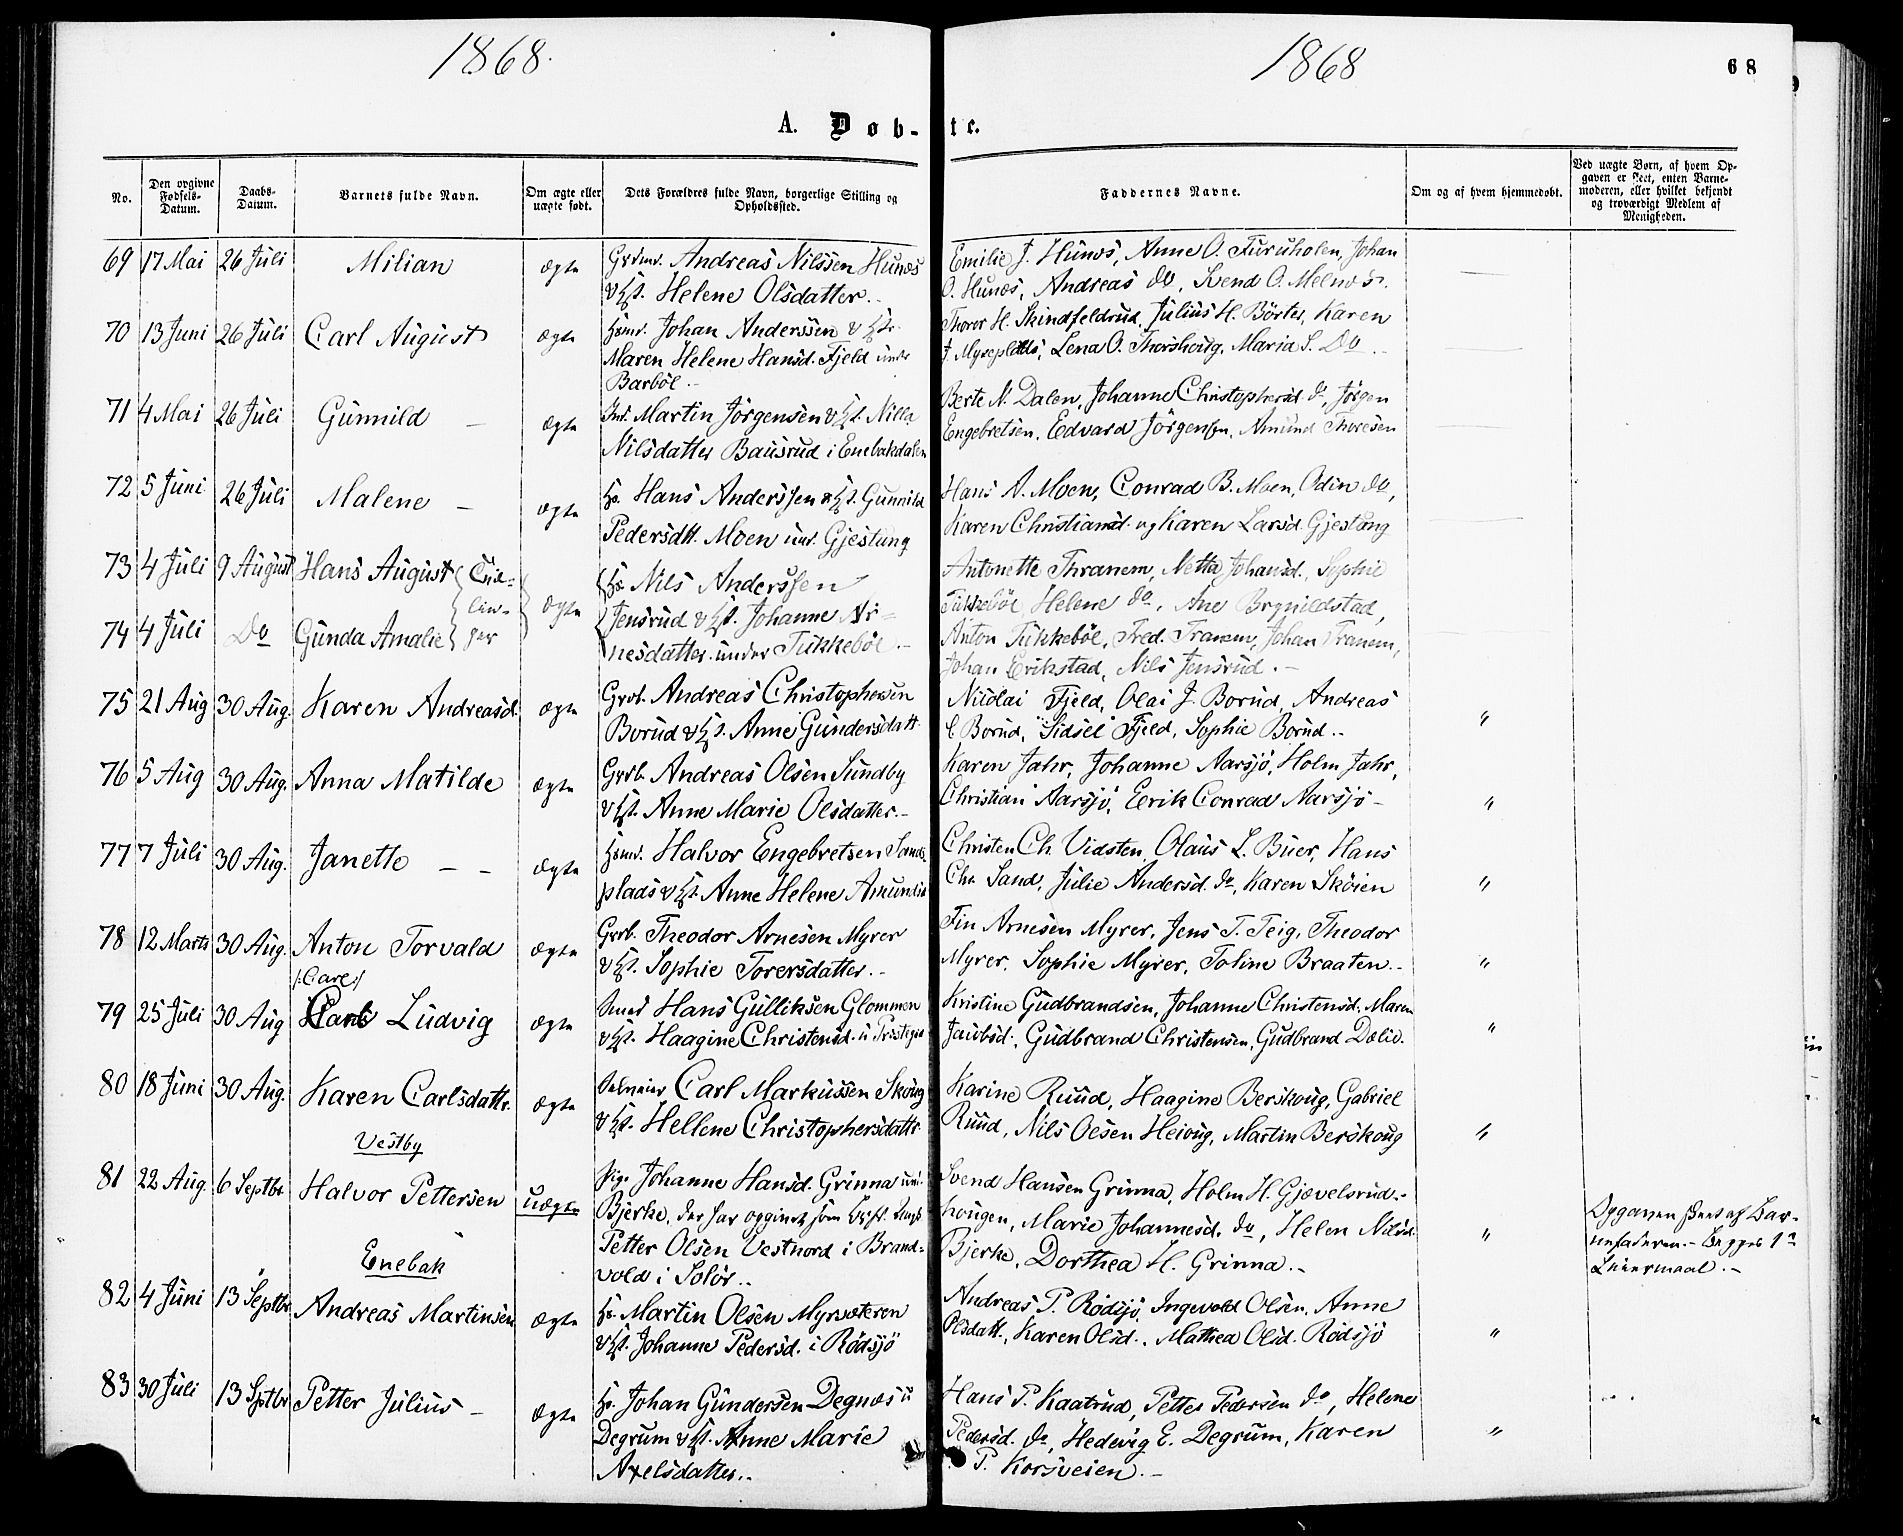 1868.
1868
68
A. Døb-
te.
No.
Den opgivne Fødsels-Datum.
Daabs-Datum.
Barnets fulde Navn.
Om ægte eller uægte født.
Dets Forældres fulde Navn, borgerlige Stilling og Opholdssted.
Faddernes Navne.
Om og af hvem hjemmedøbt.
Ved uægte Børn, af hvem Opgaven er skeet, enten Barnemoderen, eller hvilket bekjendt og troværdigt Medlem af Menigheden.
69 17 Mai 26 Juli Milian ægte Grdmd. Andreas Nilssen Hunæs
& Hst. Helene Olsdatter.-
Emilie J. Hunæs, Anne O. Furuholen, Johan
O. Hunæs, Andreas do, Svend O. Melnæs.
70 13 Juni 26 Juli Carl August ægte Husmd. Johan Anderssen & Hstr.
Maren Helene Hansd. Fjeld under
Barböl.-
Thoror H. Skindfeldrud, Julius H. Börter, Karen
J. Myreplads, Lena O. Thorshoug, Maria S. Do.
71 4 Mai 26 Juli Gunnild - ægte Martin Jörgensen & Hst. Nilla
Nilsdatter Bausrud i Enebakdalen
Berte N. Dalen, Johanne Christophersd. do, Jörgen
Engebretsen, Edvard Jörgensen, Amund Thoresen
72 5 Juni 26 Juli Malene - ægte Hs. Hans Anderssen & Hst. Gunnild
Pedersdtt. Moen und. Gjestang
Hans A. Moen, Conrad B. Moen, Odin do,
Karen Christiansd. og Karen Larsd. Gjestang
73 4 Juli 9 August Hans August
74 4 Juli Do Gunda Amalie
Tvil-
lin-
ger
ægte
Hs. Nils Anderssen
Jensrud & Hst. Johanne Ar-
nesdatter under Tukkeböl.-
Antonette Thranem, Netta Johansd., Sophie
Tukkeböl, Helene do, Ane Brynildstad,
Anton Tukkeböl, Fred. Tranem, Johan Tranem,
Johan Erikstad, Nils Jensrud.-
75 21 Aug 30 Aug. Karen Andreasd. ægte Grdb. Andreas Christophersen
Borud & Hst. Anne Gundersdatt.
Nicolai Fjeld, Olai J. Borud, Andreas
C. Borud, Sidsel Fjeld, Sophie Borud.- "
76 5 Aug 30 Aug. Anna Matilde ægte Grdb. Andreas Olsen Sundby
& Hst. Anne Marie Olsdatter.-
Karen Jahr, Johanne Aarsjö, Holm Jahr,
Christian Aarsjö, Erik Conrad Aarsjö- "
77 7 Juli 30 Aug. Janette - - ægte Husmd. Halvor Engebretsen
plads & Hst. Anne Helene Amundsd.
Christen Ch. Vidsten, Olaus L. Buer, Hans
Chr. Sand, Julie Andersd. do, Karen Sköien "
78 12 Marts 30 Aug. Anton Torvald ægte Grdb. Theodor Arnesen Myrer
& Hst. Sophie Torersdatter.-
Fin Arnesen Myrer, Jens T. Teig, Theodor
Myrer, Sophie Myrer, Toline Braaten.- "
/:Carl:/
79 25 Juli 30 Aug Carl Ludvig ægte Hans Gulliksen Glommen
& Hst. Haagine Christensd.
Kristine Gudbrandsen, Johanne Christensd., Maren
Jacobsd., Gudbrand Christensen, Gudbrand Dælid. "
80 18 Juni 30 Aug. Karen Carlsdattr. ægte Selveier Carl Markussen Skoug
& Hst. Hellene Christophersdattr.
Karine Ruud, Haagine Berskoug, Gabriel
Ruud, Nils Olsen Heioug, Martin Berskoug "
Vestby
81 22 Aug. 6 Septbr. Halvor Pettersen uægte Pige Johanne Hansd. Grinna und.
Bjerke, der har opgivet som Brfd. Ungk.
Petter Olsen Vestnord i Brand-
vold i Solör.-
Svend Hansen Grinna, Holm H. Gjævelsrud-
hougen, Marie Johannesd. do, Helen Nilsd.
Bjerke, Dorthea H. Grinna.- "
Opgaven skeet af Bar-
nefaderen.- Begges 1ste
Leiermaal.-
Enebak
82 4 Juni 13 Septbr. Andreas Martinsen ægte Hs. Martin Olsen Myrsæteren
& Hst. Johanne Pedersd. i Rödsjö
Andreas P. Rödsjö, Ingevold Olsen, Anne
Olsdatt., Karen Olsd., Mathea Olsd. Rödsjö "
83 30 Juli 13 Sptbr Petter Julius - ægte Hs. Johan Gundersen Degnæs u
Degrum & Hst. Anne Marie
Axelsdatter.-
Hans P. Kaatrud, Petter Pedersen do, Helene
Pedersd. do, Hedevig E. Degrum, Karen
P. Korsveien.- "